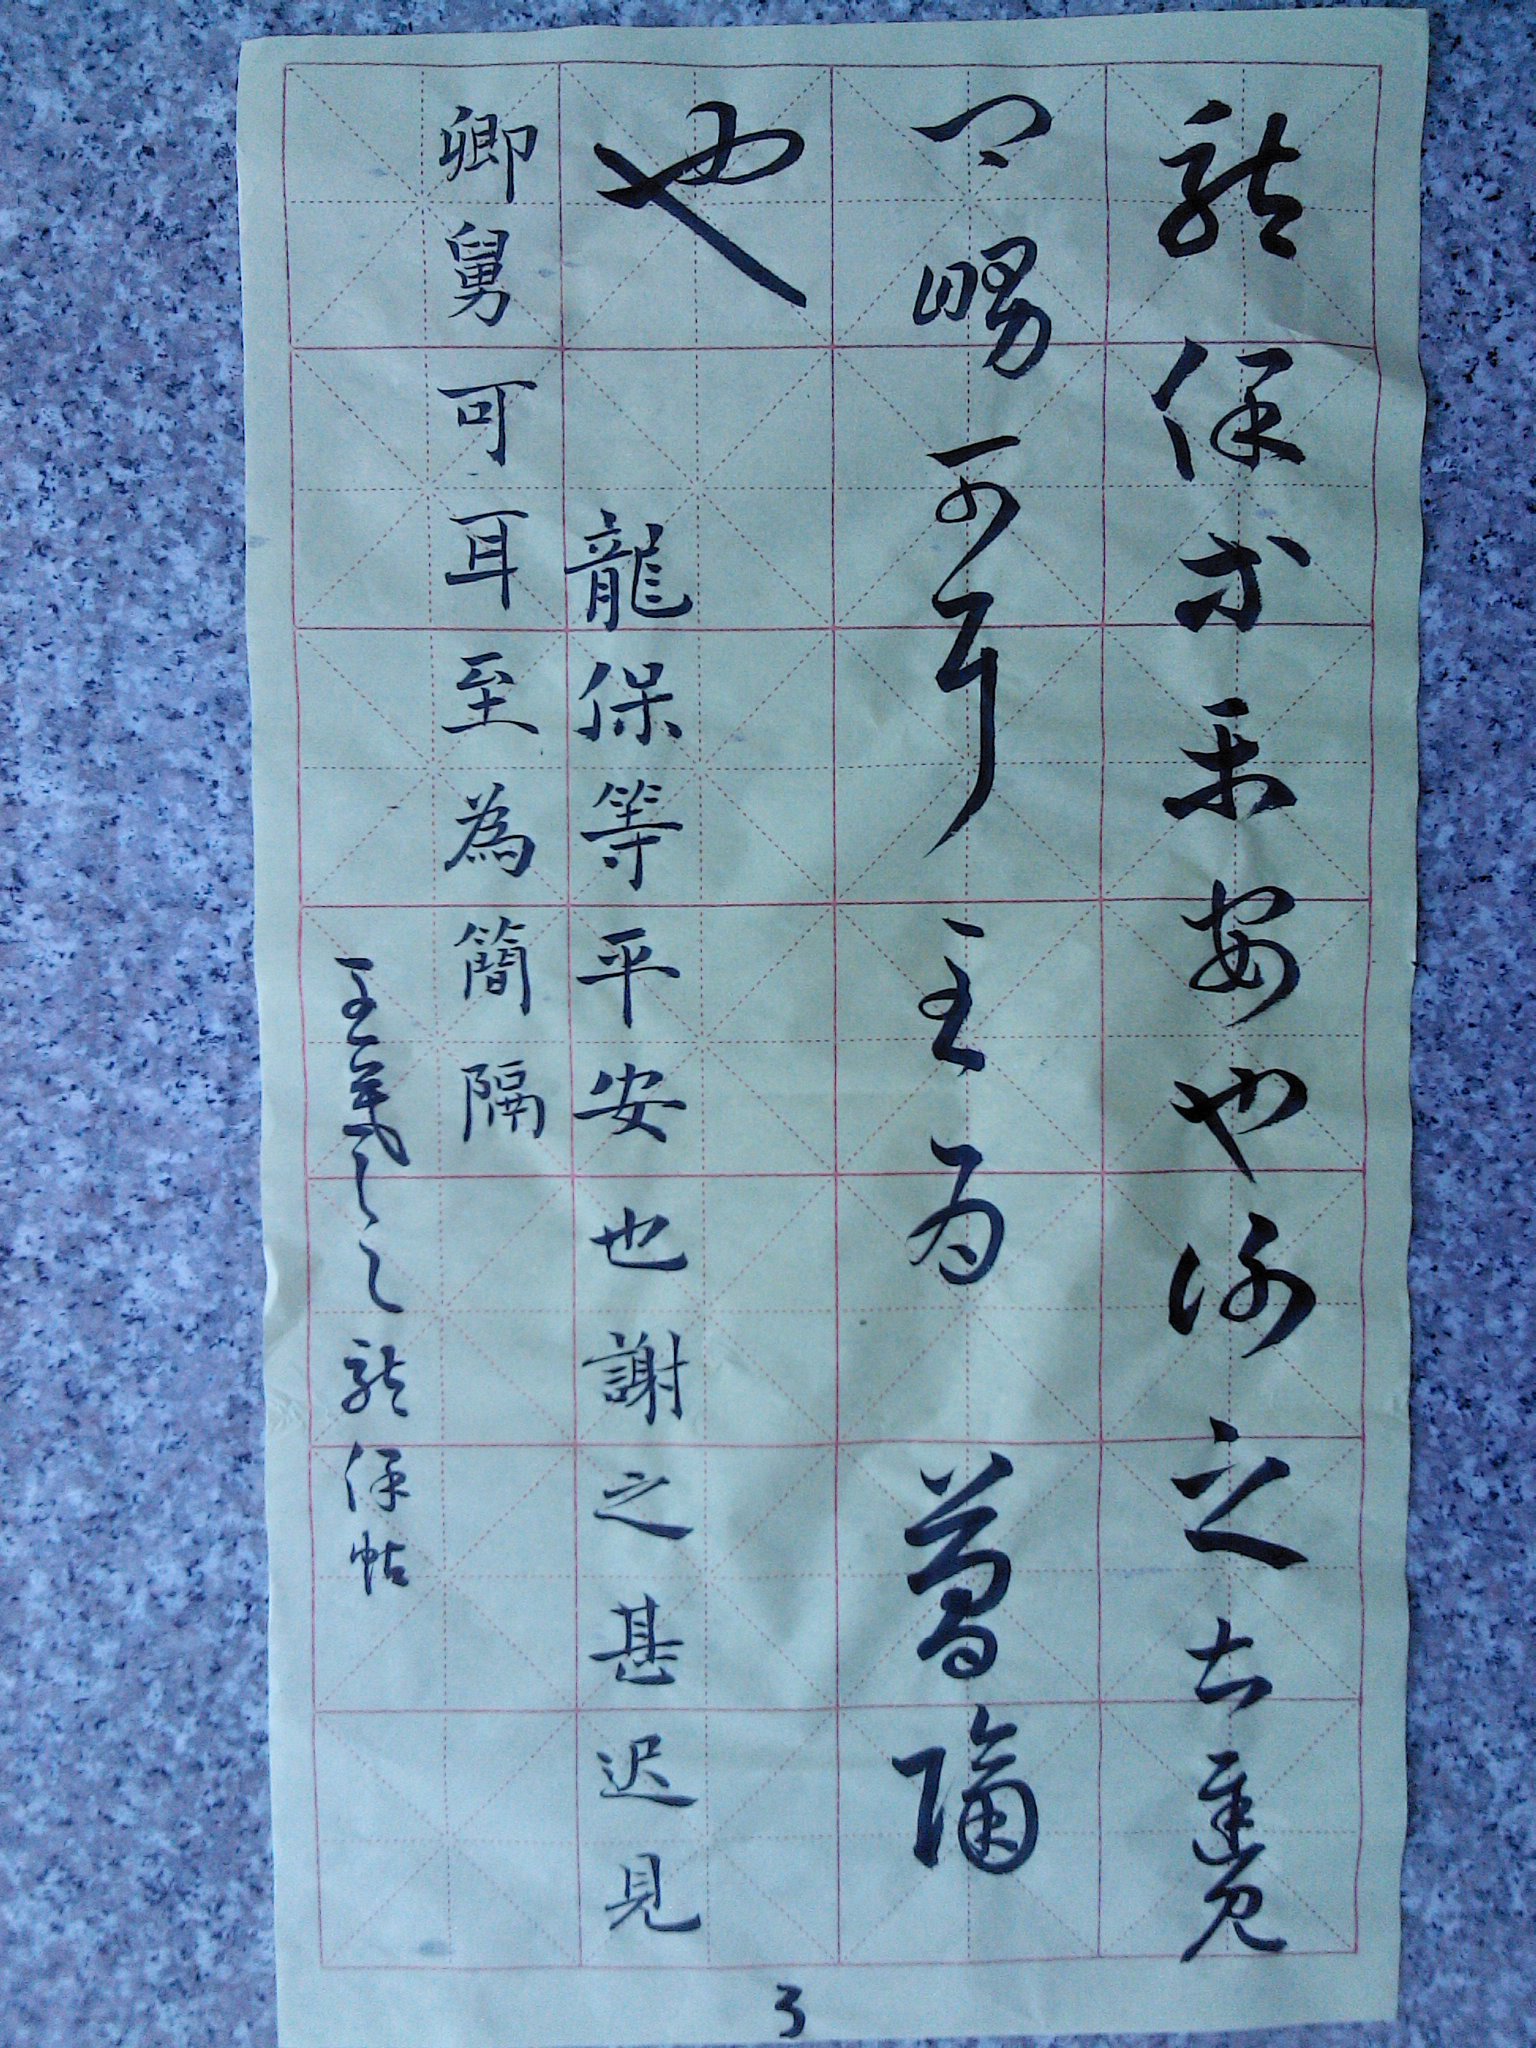 龍保等平安也謝之甚遲見
卿舅可耳至為簡隔
也
龍保等平安也謝之甚迟見
卿舅可耳至為簡隔
王羲之之龍保帖
3